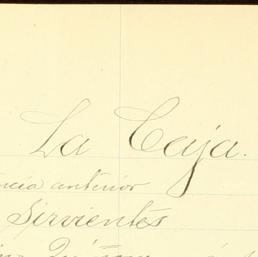 La Caja.
ncia anterior
Sirvientes